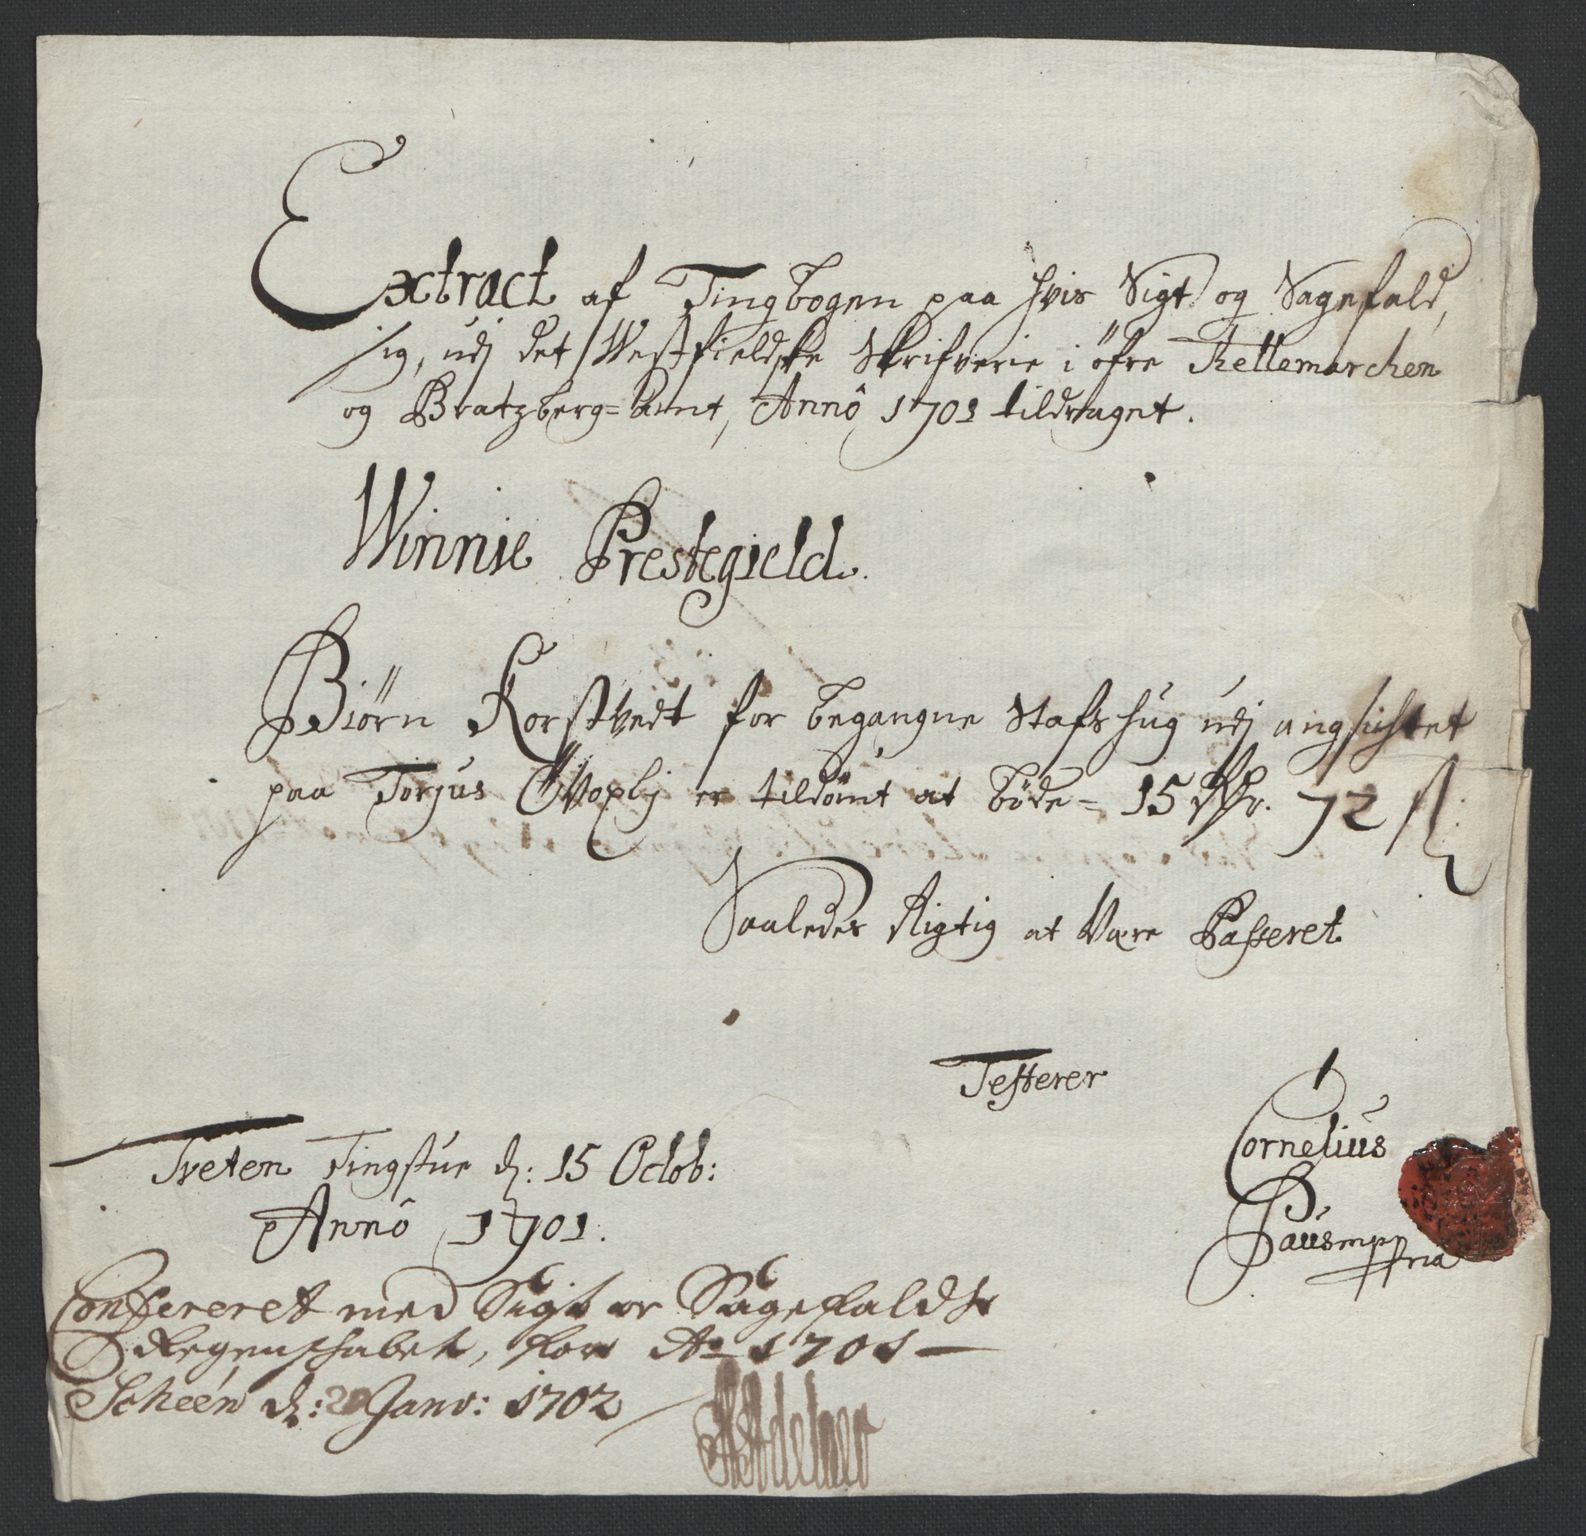 Extract af Tingbogen paa hvis Sigt og Sagefald,
sig, udj det Westfieldske Skrifverie i öfre Tellemarchen
og Bratzberg=Amt, Annô 1701 tildraget.
Winnie Prestegield.
Biörn Korstvedt for begangne Stafs hug udj angsichtet
paa Torjus er tildömt at böde = 15 Rdr. 72 ß
Saaledes Rigtig at Være Passeret
Testerer
Cornelius
Paus mpp
ria
Tveten Tingstue d: 15 Octob:
Annô 1701.
Confereret med Sigt or Sagefalds
Regenschabet, for Ao 1701 —
Scheen d: 20 Janv: 1702